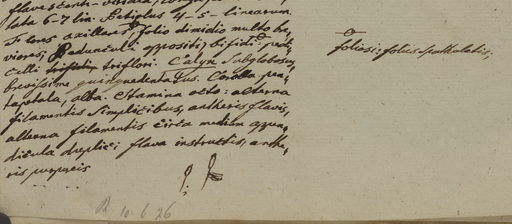 lata 6-7 lin: Petiolus 4-5- linearum
Flores axillares, folio dimidio multo bre,
viores, Pedunculi oppositi, bifidi: pedi,
celli trifidi triflori. Calyx Subglobosus,
brevissime quinquedentatus. Corolla pen,
tapetala, alba. Stamina octo: alterna
filamentis Simplicibus, antheris flavis,
alterna filamentis circa medium appen,
dicula duplici flava instructis, anthe,
ris purpureis
foliosi: foliis spathulatis,
10.6.26